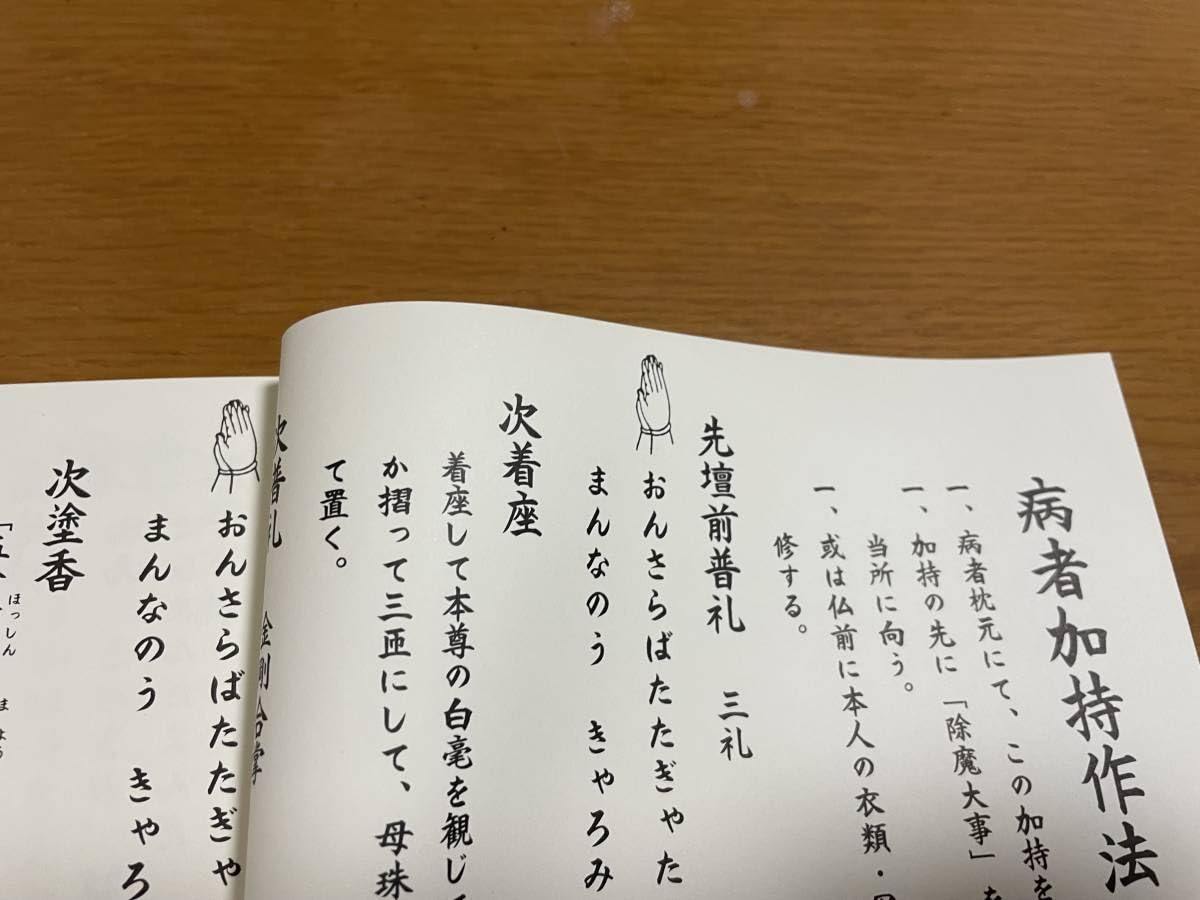 病者加持作法
一、病者枕元にて、この加持を
一、加持の先に「除魔大事」を
当所に向う。
一、或は仏前に本人の衣類・
修する。
先壇前普礼 三礼
おんさらばたたぎゃた
まんなのう きゃろみ
次着座
着座して本尊の白毫を観じ
か摺って三匝にして、母珠
て置く。
次普礼 金剛合掌
おんさらばたたぎゃ
まんなのう きゃろ
次塗香
ほっしん